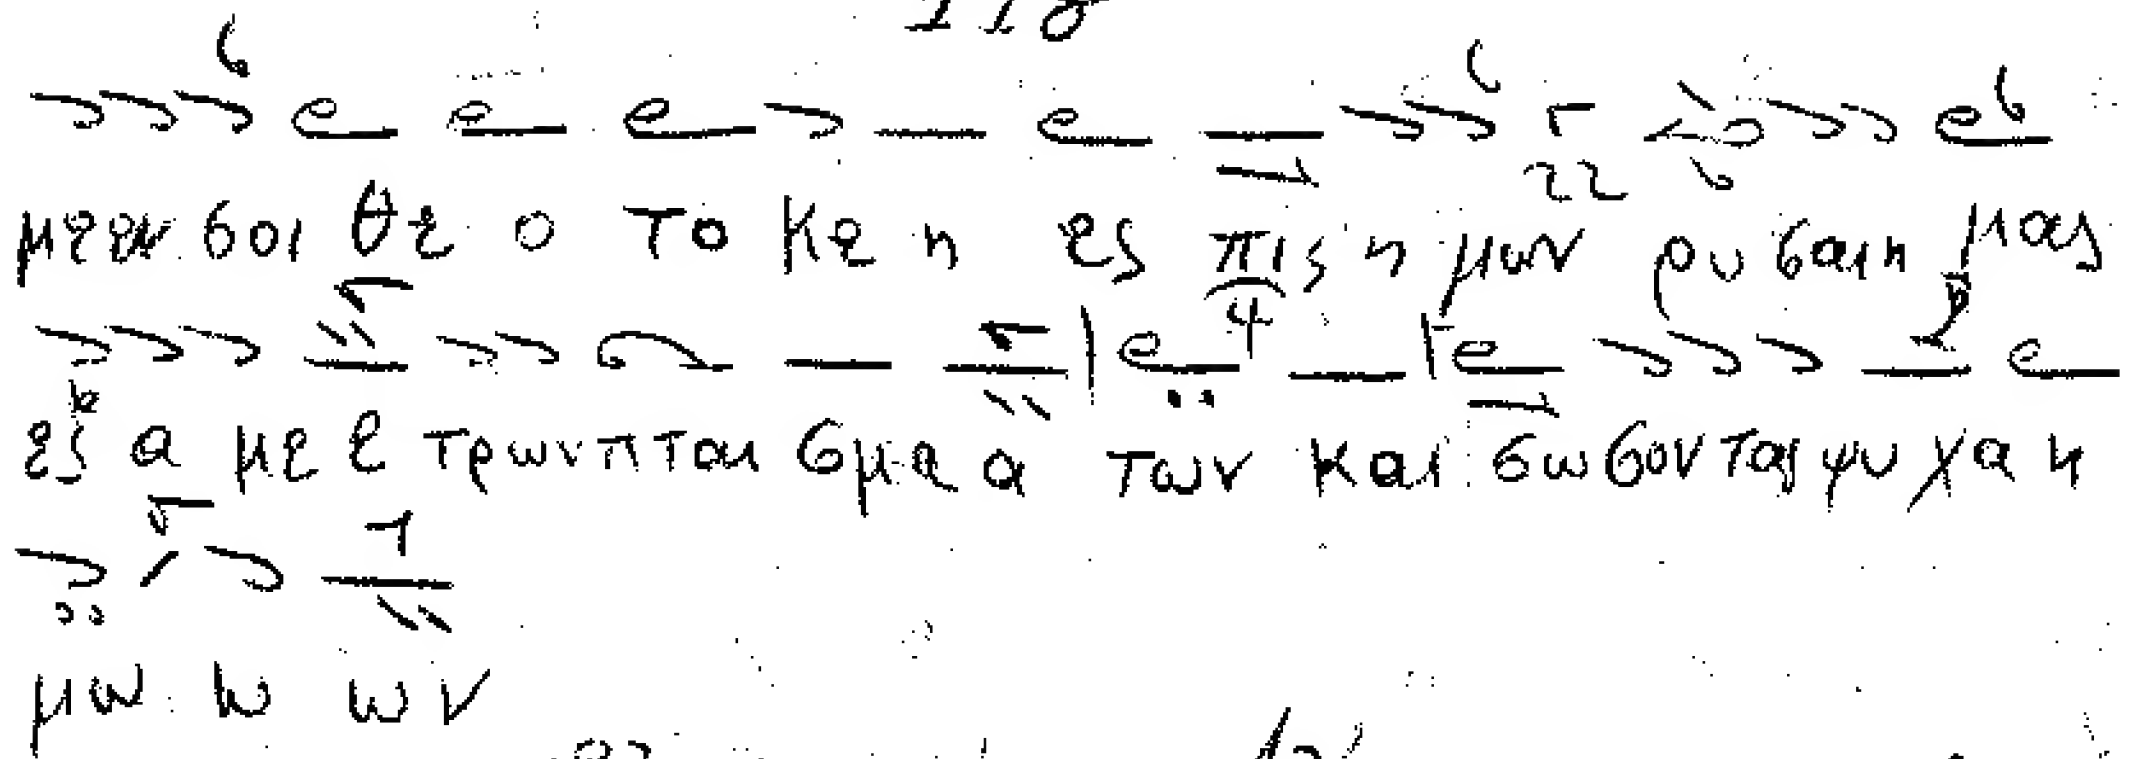 118
μεεν σοι θε ο το κε η ες πις η μων ρυ σαι η μας
εξ α με ε τρων πται σμα α των και σω σον τας ψυ χα η
μω ω ων